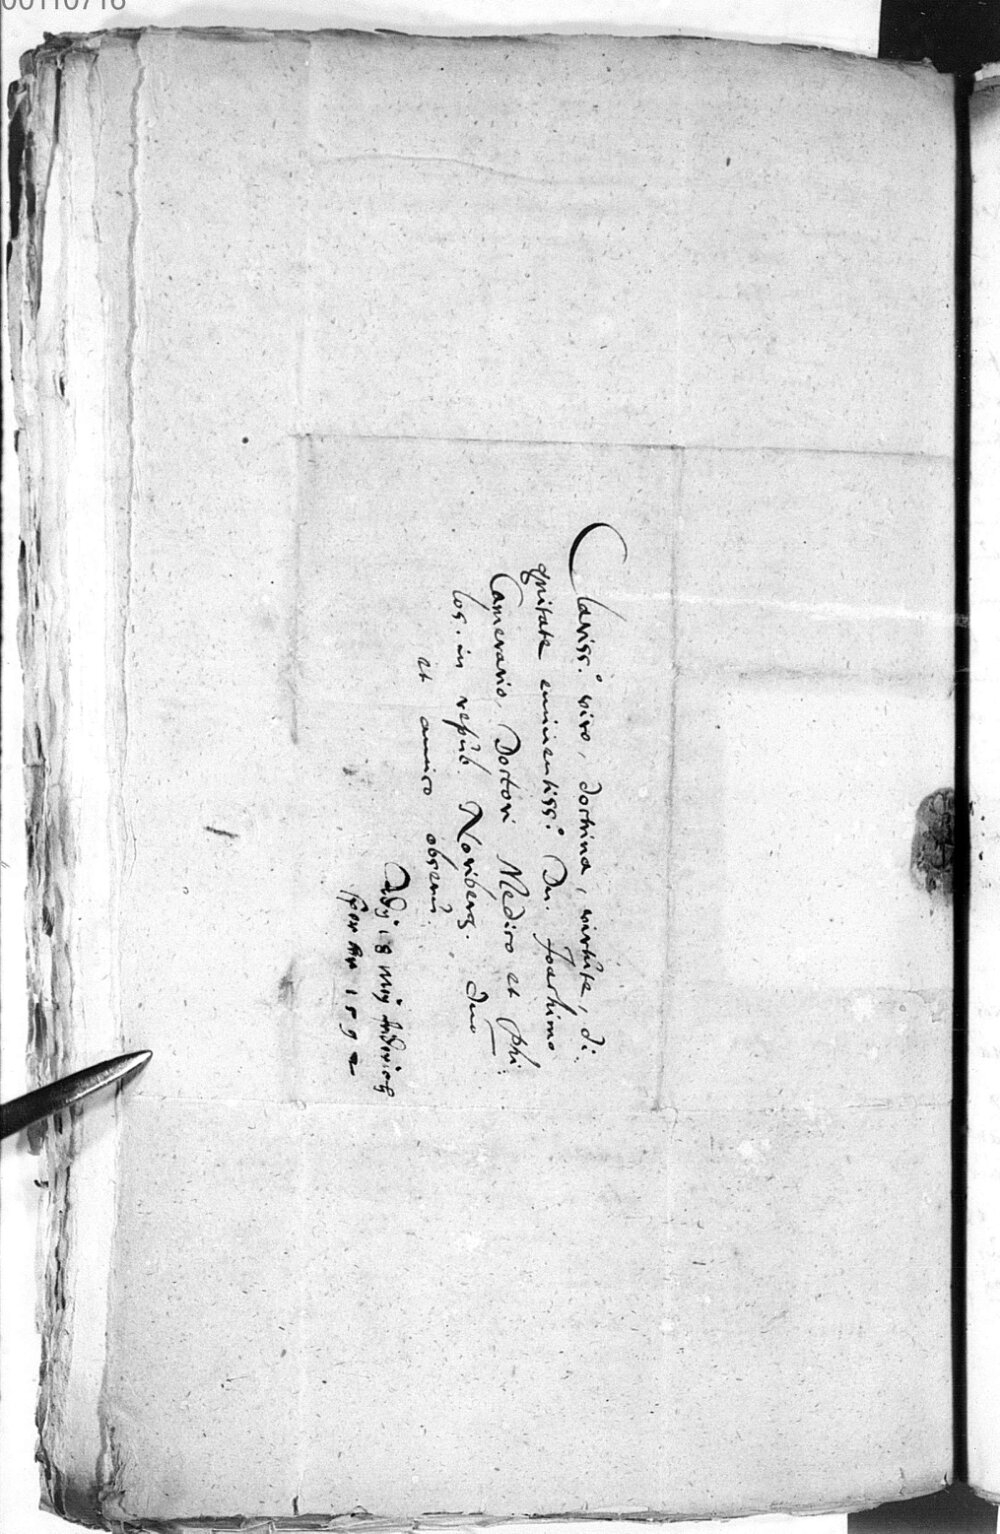 00110716
Clariss.º viro, doctrina, virtute, di.
gnitate eminentiss.º Dn. Joachimo
Camerario, Doctori Medico et Phi:
los. in repub. Noriberg. Dno
et amico obseru.
Adj 18
1592